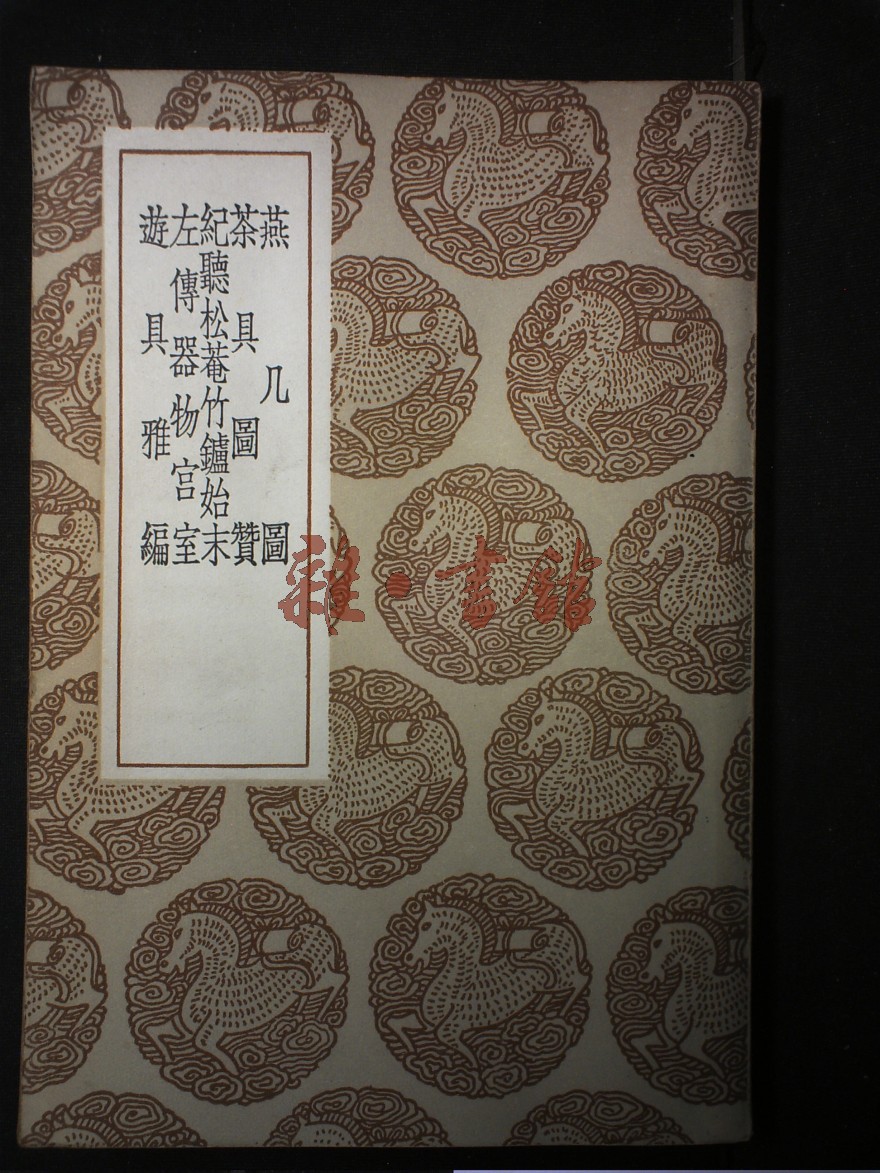 燕几圖
茶具圖贊
紀聽松菴竹鑪始末
左傳器物宮室
遊具雅編
雜·書館